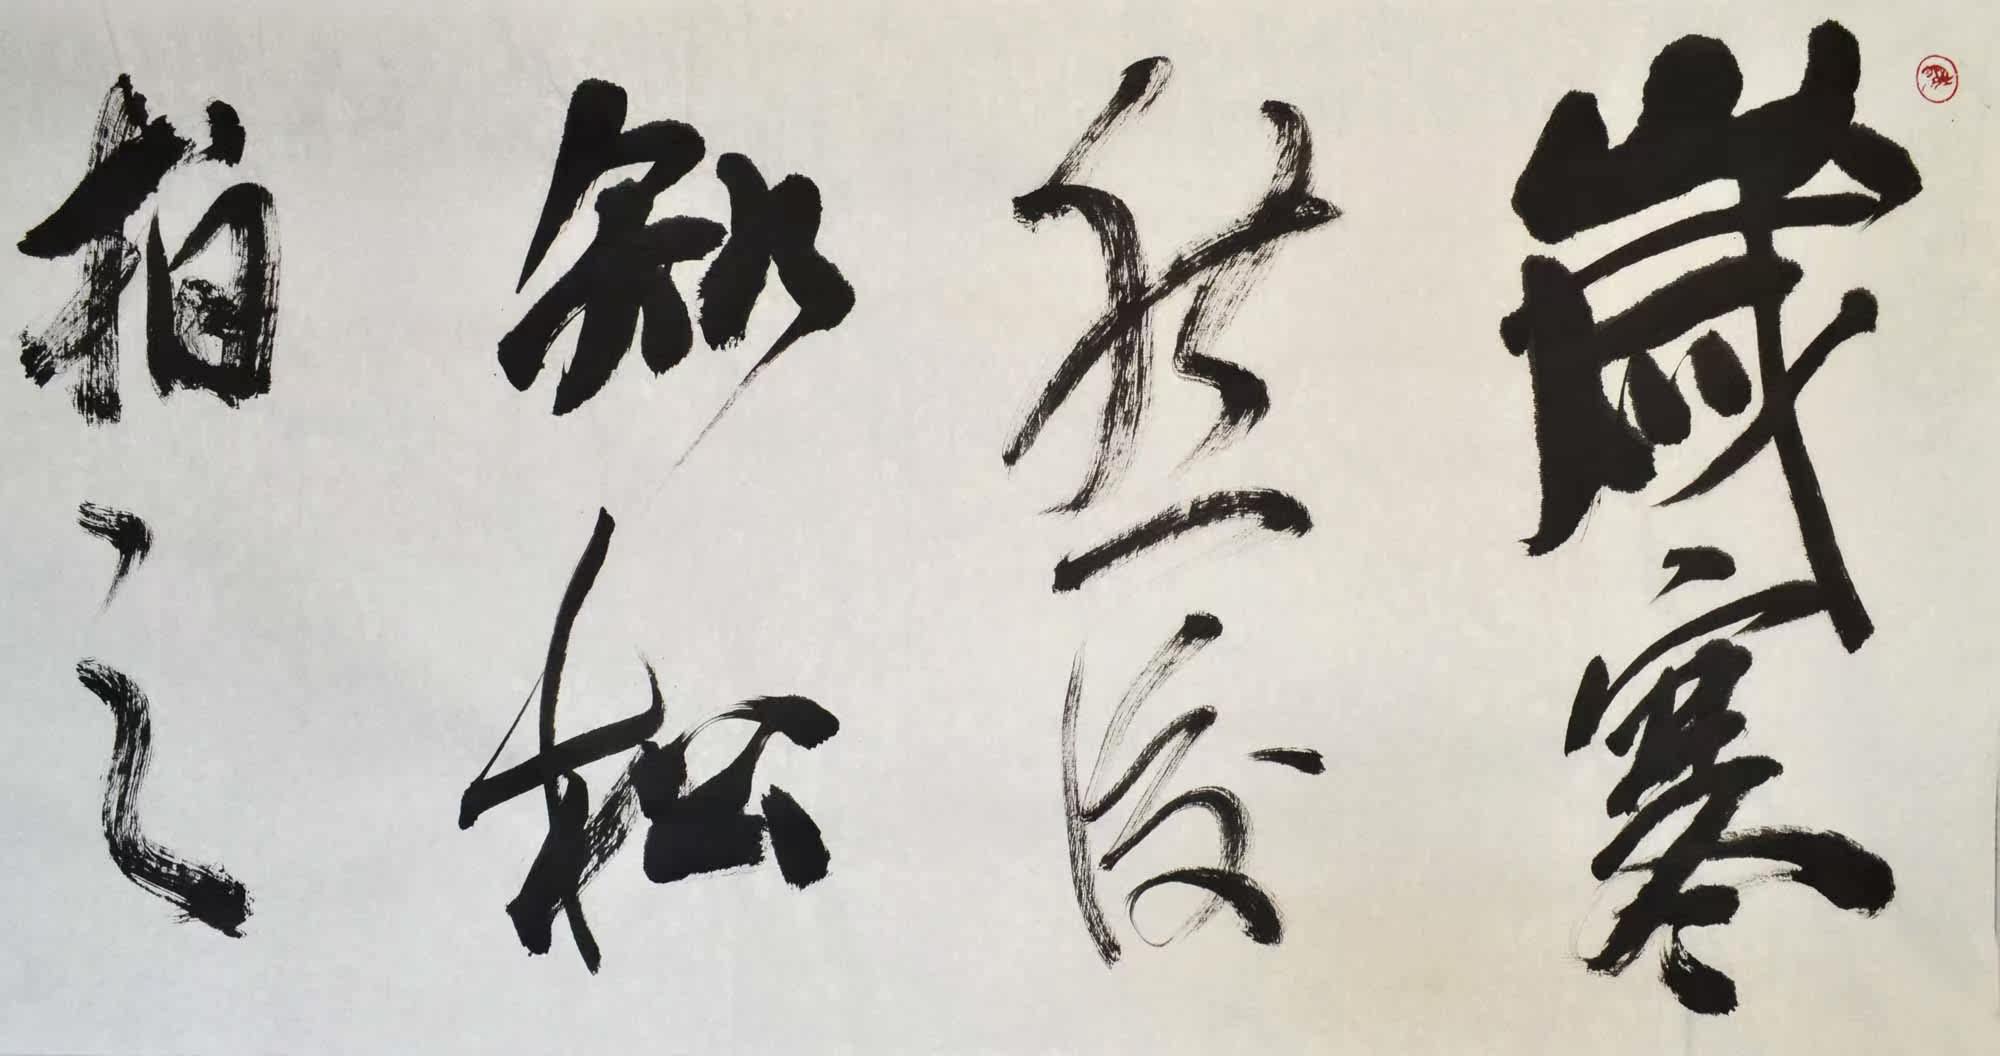 歲寒
然後
知松
柏之